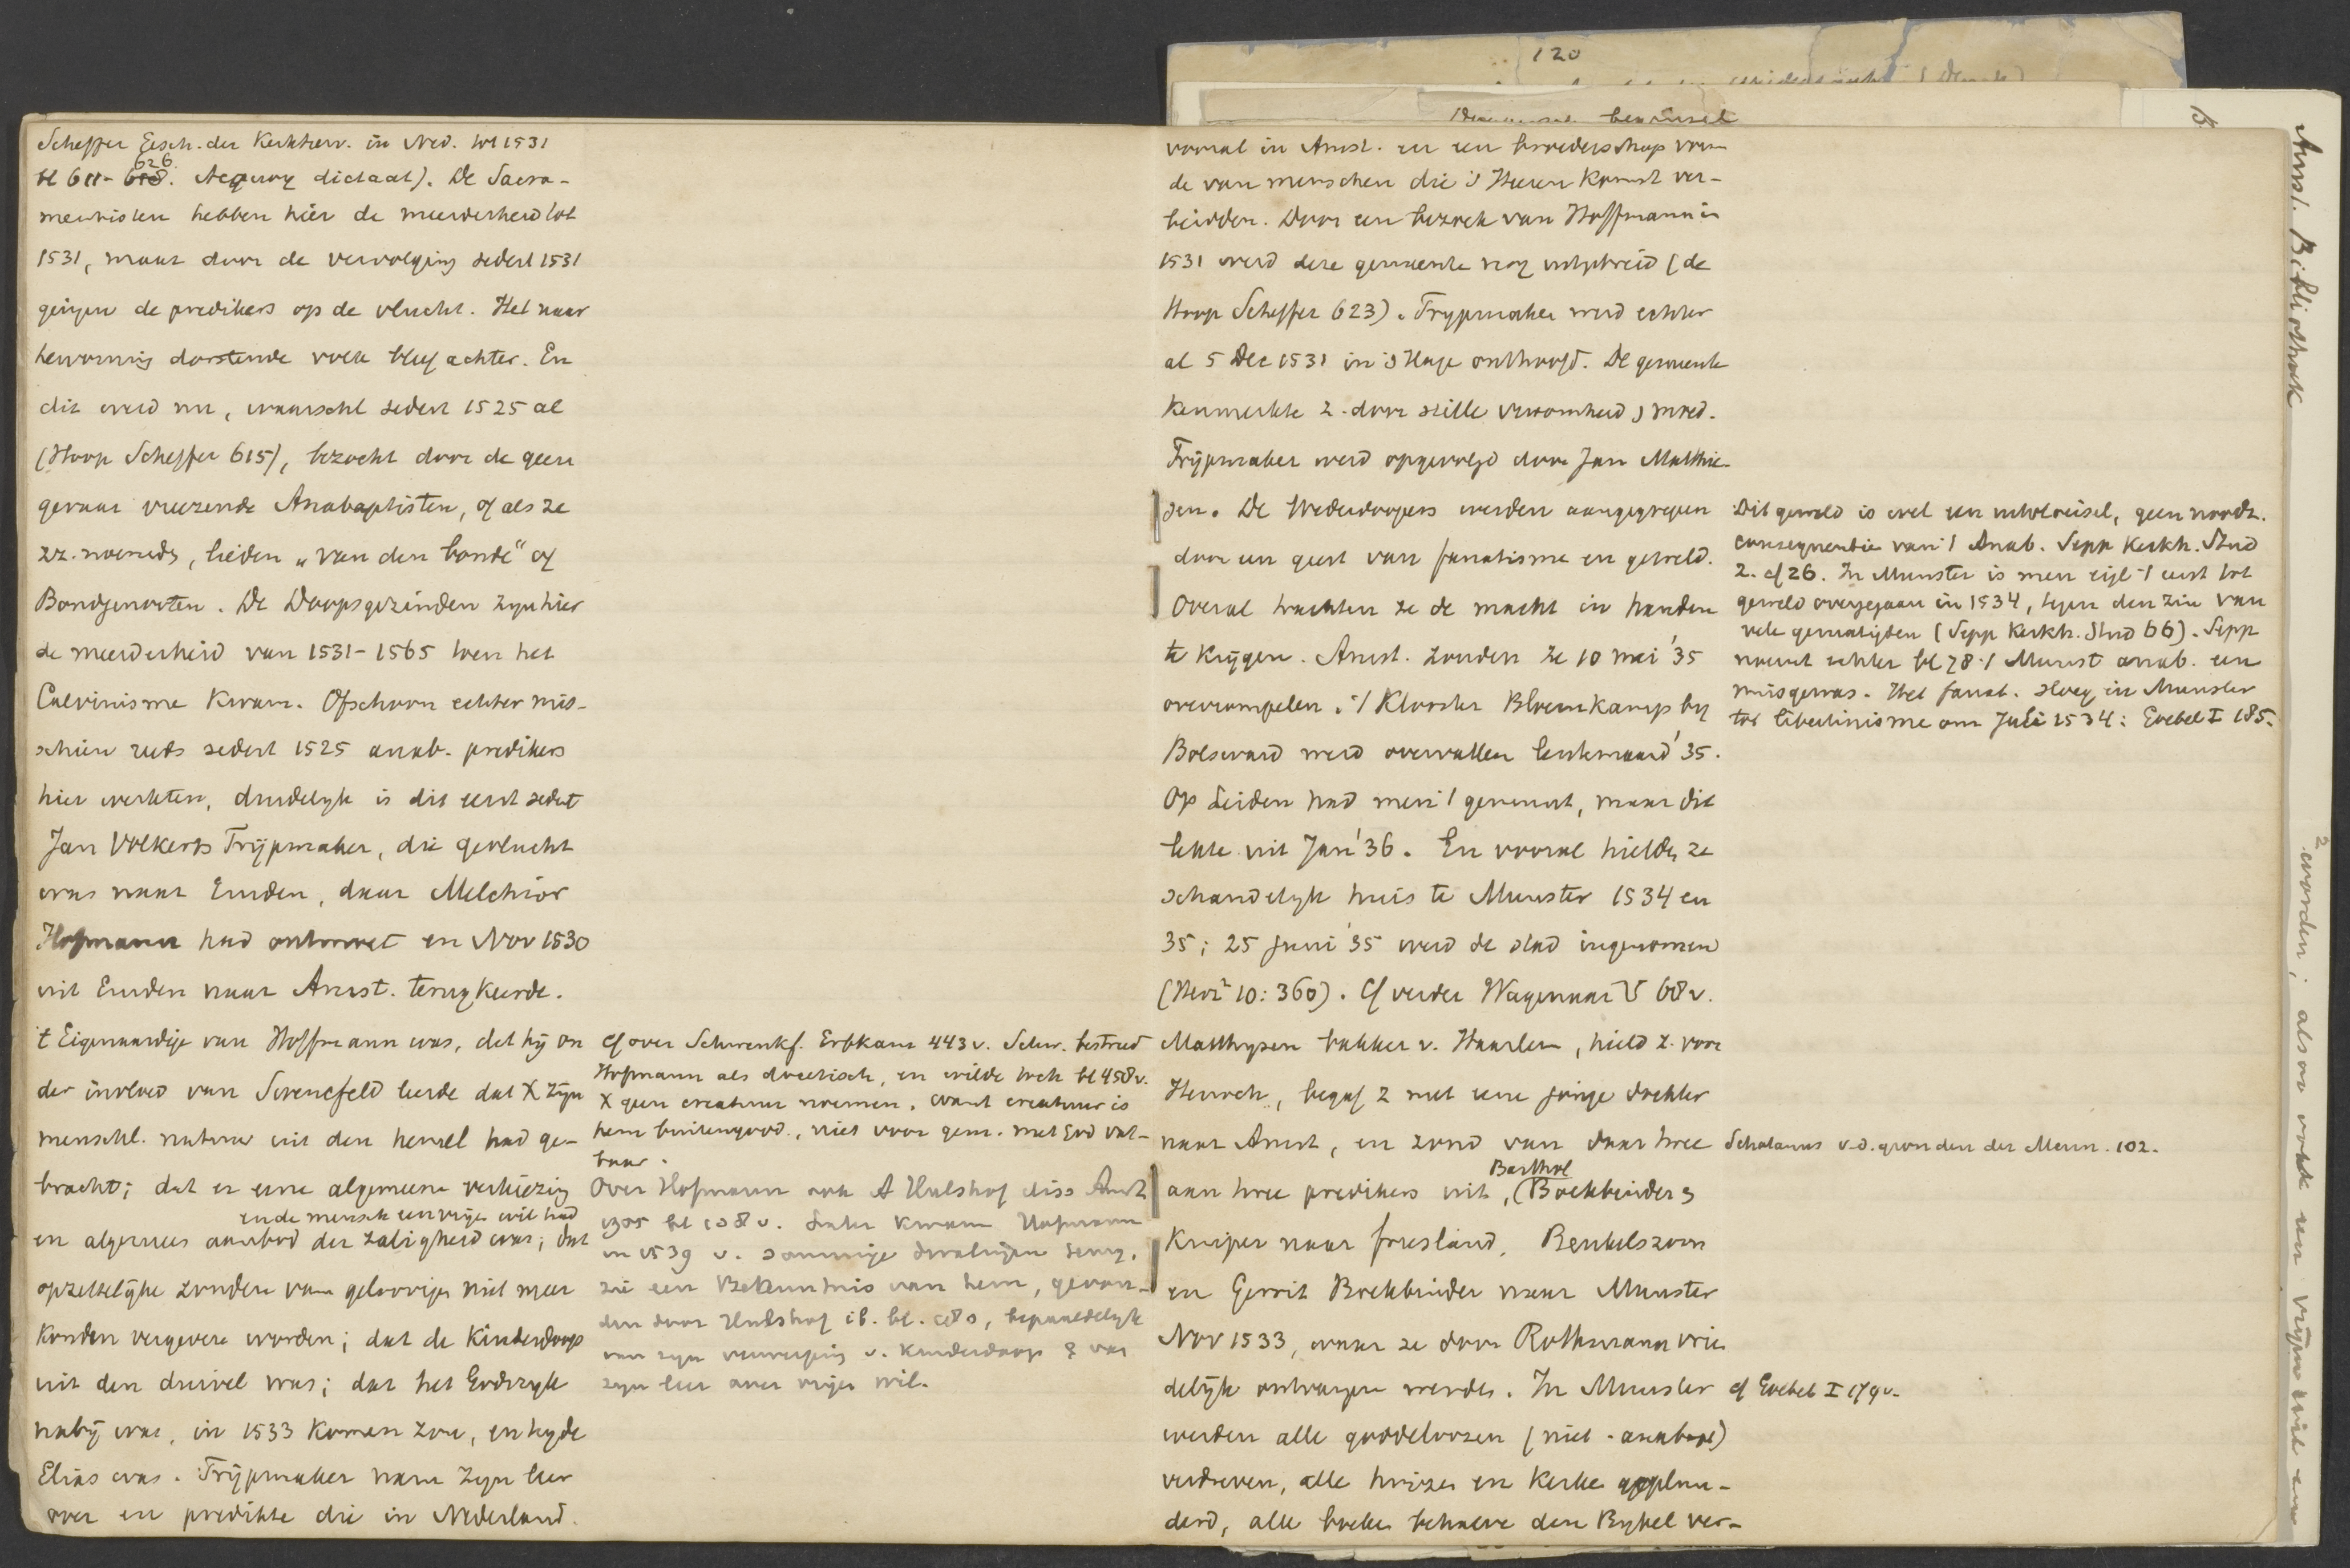 Scheffer Gesch. der Kerkherv. in Ned. tot 1531
626
bl 611-618. Acquoy dictaat). De Sacra-
mentisten hebben hier de meerderheid tot
1531, maar door de vervolging sedert 1531
gingen de predikers op de vlucht. Het naar
hervorming dorstende volk bleef achter. En
dit werd nu, waarschl sedert 1525 al
(Hoop Scheffer 615), bezocht door de geen
gevaar vreezende Anabaptisten, of als ze
zz. noemden, lieden „van den bonde" of
Bondgenooten. De Doopsgezinden zyn hier
de meerderheid van 1531-1565 toen het
Calvinisme kwam. Ofschoon echter mis-
schien reeds sedert 1525 anab. predikers
hier werkten, duidelyk is dit eerst sedert
Jan Volkerts Trijpmaker, die gevlucht
was naar Emden, daar Melchior
Hofmann had ontmoet en Nov 1530
uit Emden naar Amst. terugkeerde.
't Eigenaardige van Hoffmann was, dat hij on
der invloed van Swencfeld leerde dat X zijn
menschl. natuur uit den hemel had ge-
bracht; dat er eene algemeene verkiezing
en de mensch een vrijen wil had
en algemeen aanbod der zaligheid was; dat
opzettelijke zonden van geloovigen niet meer
konden vergeven worden; dat de Kinderdoop
uit den duivel was; dat het Godsryk
nabij was, in 1533 komen zou, en hyde
Elias was. Trijpmaker nam zyn leer
over en predikte die in Nederland.
cf over Schwenkf. Erbkam 443v. Schw. bestreed
Hofmann als doceetisch, en wilde toch bl 458v.
X geen creatuur noemen, want creatuur is
hem buitengood., niet voor gem. met God vat-
baar.
Over Hofmann ook A Hulshof diss Amst
1905 bl 108v. Later kwam Hofmann
in 1539 v. sommige dwalingen terug,
zie een Bekenntnis van hem, gevon-
den door Hulshof ib. bl. 180, bepaaldelyk
van zyn verwerping v. kinderdoop & van
zyn leer over vrijen wil.
120
vooral in Amst. en een broederschap vorm
de van menschen die 's Heeren komst ver-
beidden. Door een bezoek van Hoffmann in
1531 werd deze gemeente nog uitgebreid (de
Hoop Scheffer 623). Trypmaker werd echter
al 5 Dec 1531 in 's Hage onthoofd. De gemeente
kenmerkte z. door stille vroomheid & moed.
Trijpmaker werd opgevolgd door Jan Matthie-
sen. De Wederdoopers werden aangegrepen
door een geest van fanatisme en geweld.
Overal trachtten ze de macht in handen
te krijgen. Amst. zouden ze 10 mei '35
overrompelen. 't Klooster Bloemkamp by
Bolsward werd overvallen lentemaand '35.
Op Leiden had men 't gemunt, maar dit
lekte uit Jan '36. En vooral hielden ze
schandelyk huis te Munster 1534 en
35; 25 Juni '35 werd de stad ingenomen
(Herz² 10:360). Cf verder Wagenaar V 68v.
Matthysen bakker v. Haarlem, hield z. voor
Henoch, begaf z met eene jonge dochter
naar Amst, en zond van daar twee
Barthol
aan twee predikers uit, (Boekbinder &
Kuiper naar friesland, Beukelszoon
en Gerrit Boekbinder naar Munster
Nov 1533, waar ze door Rothmann vrien
delijk ontvangen werden. In Munster
werden alle goddeloozen (niet-anabapt)
verdreven, alle huizen en kerken geplun-
derd, alle boeken behalve den Bybel ver-
Dit geweld is wel een uitvloeisel, geen noodz.
consequentie van 't Anab. Sepp Kerkh. Stud
2. cf 26. In Munster is men eigl 't eerst tot
geweld overgegaan in 1534, tegen den zin van
vele gematigden (Sepp Kerkh. Stud 66). Sepp
noemt echter bl 78 't Munst anab. een
misgewas. Het fanat. sloeg in Munster
tot libertinisme om Juli 1534: Goebel I 185.
Scholanus v.d. gronden der Menn. 102.
cf Goebel I 179v.
Amst. Bibliotheek
2 worden; alsoo ook een vrijen wil en